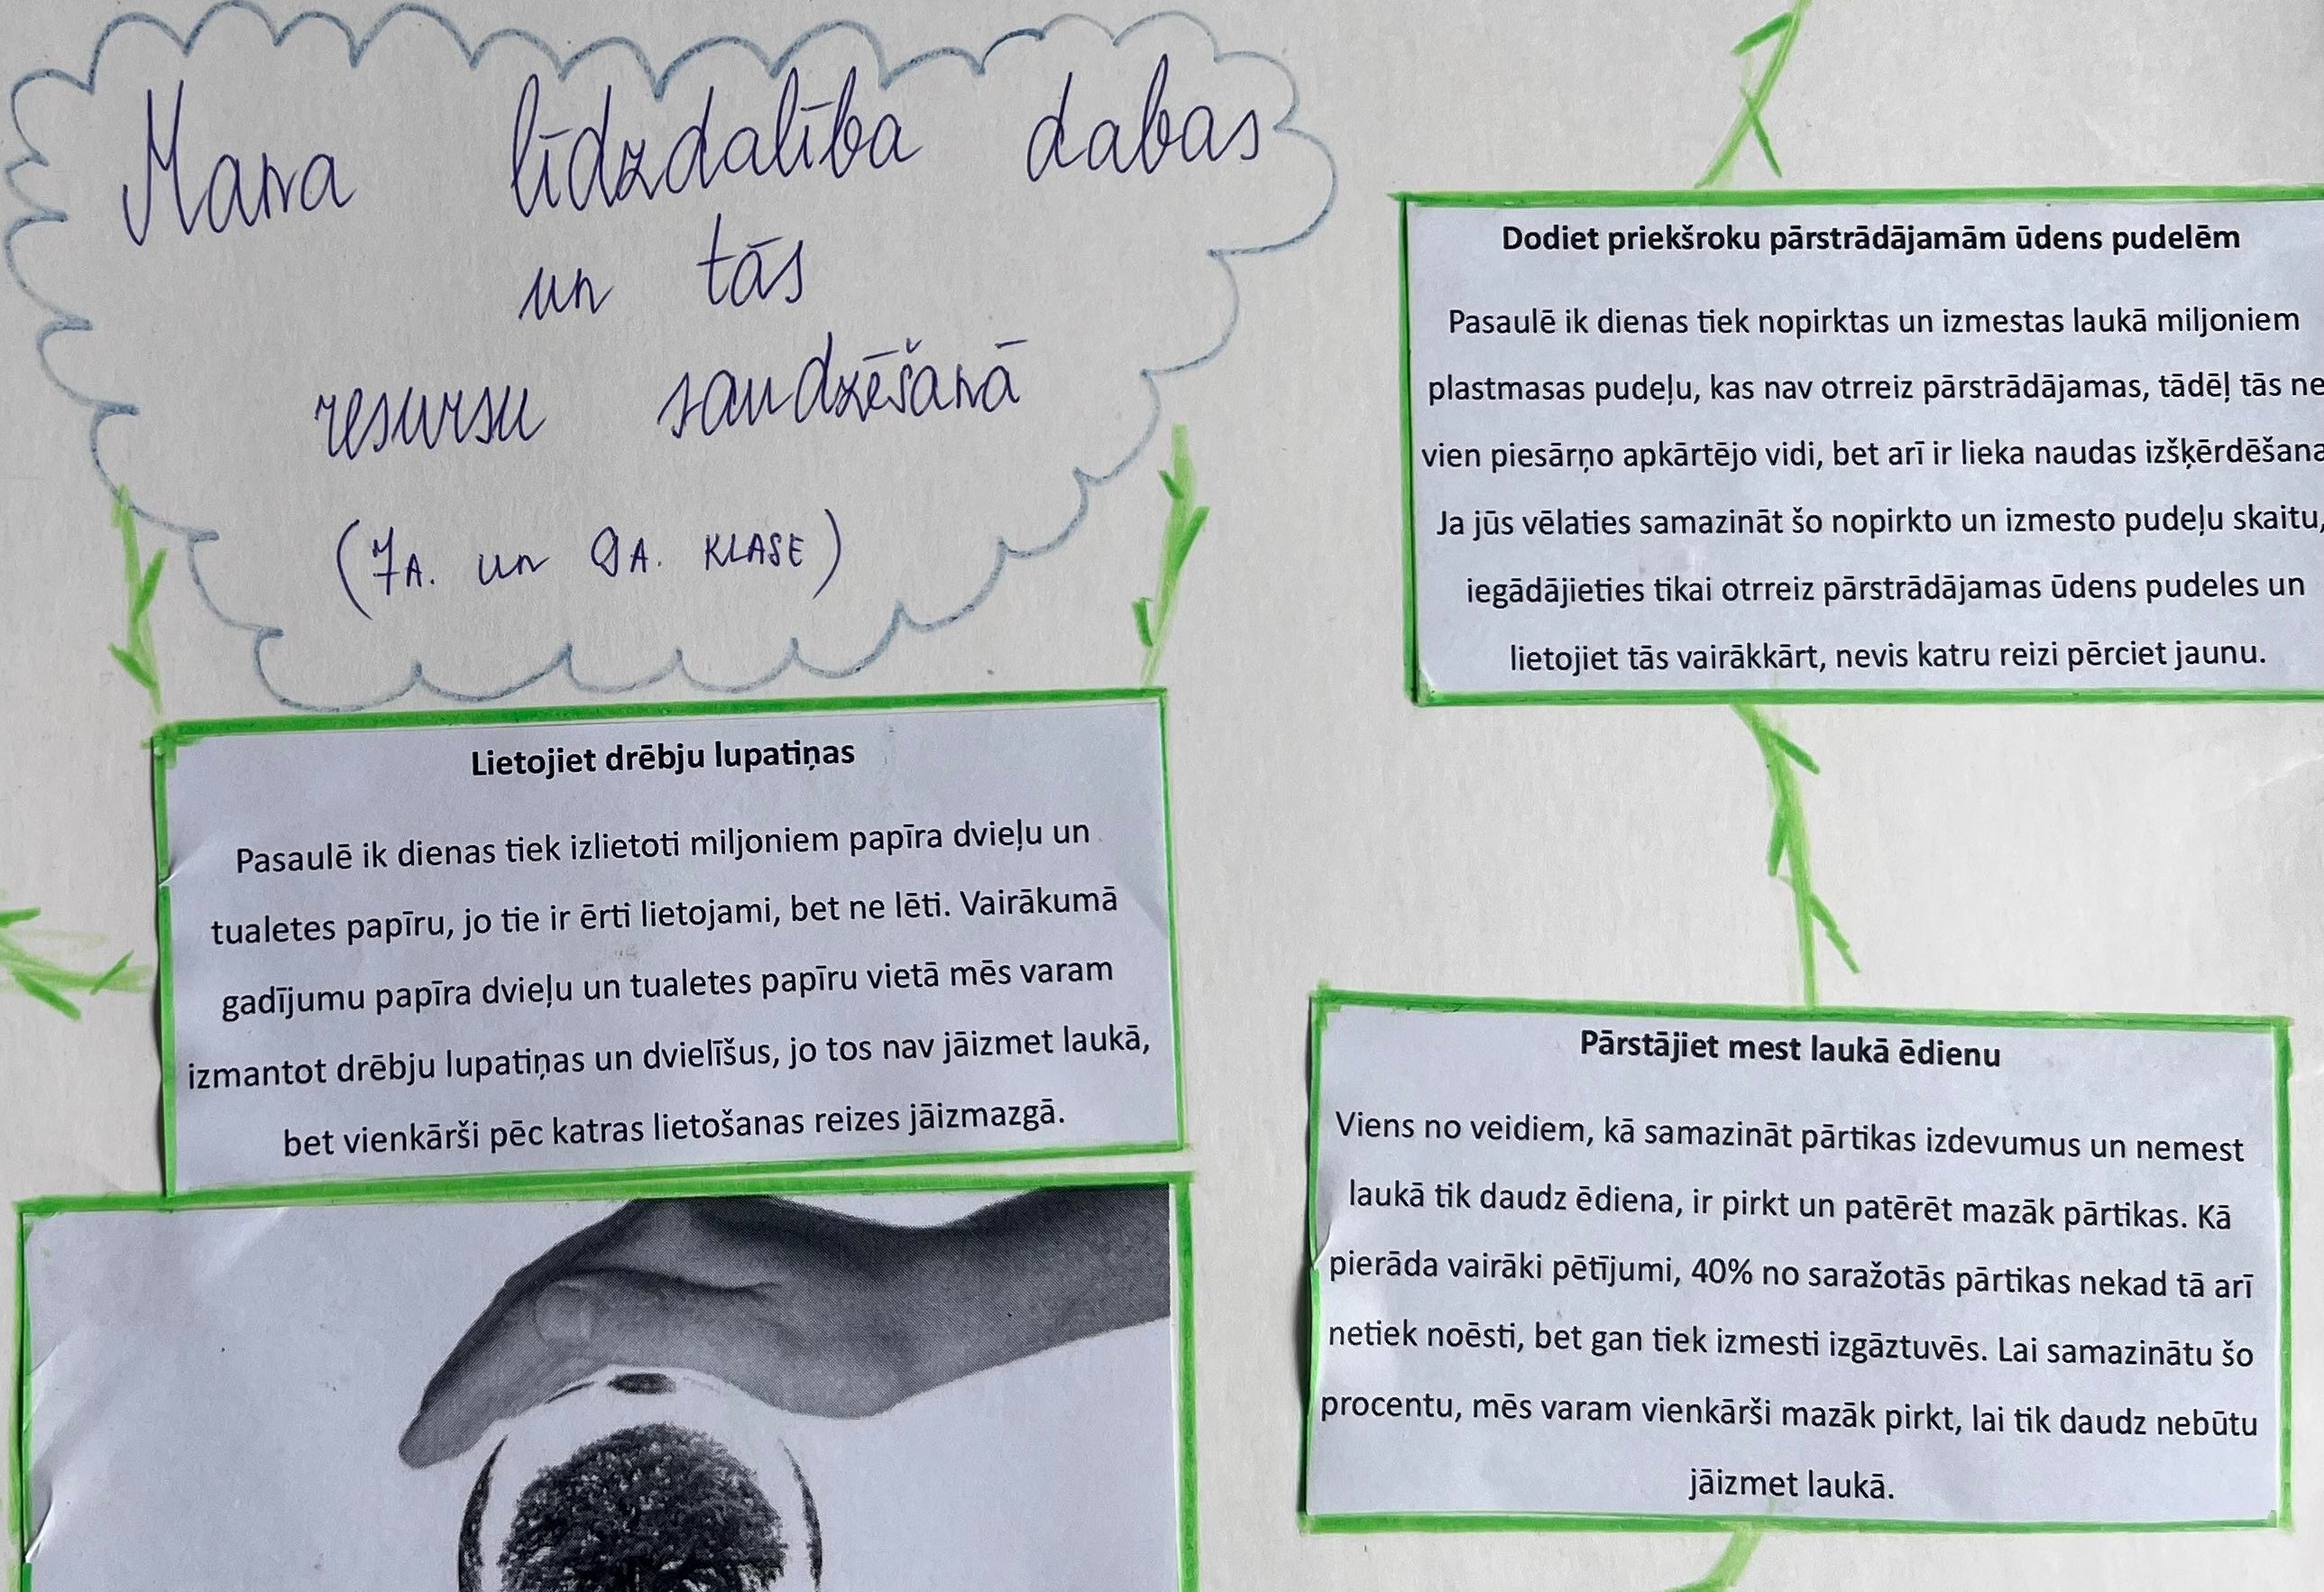 Mana līdzdalība dabas
un tās
resursu saudzēšanā
(7A. un 9A. KLASE)
Lietojiet drēbju lupatiņas
Pasaulē ik dienas tiek izlietoti miljoniem papīra dvieļu un
tualetes papīru, jo tie ir ērti lietojami, bet ne lēti. Vairākumā
gadījumu papīra dvieļu un tualetes papīru vietā mēs varam
izmantot drēbju lupatiņas un dvielīšus, jo tos nav jāizmet laukā,
bet vienkārši pēc katras lietošanas reizes jāizmazgā.
Dodiet priekšroku pārstrādājamām ūdens pudelēm
Pasaulē ik dienas tiek nopirktas un izmestas laukā miljoniem
plastmasas pudeļu, kas nav otrreiz pārstrādājamas, tādēļ tās ne
vien piesārņo apkārtējo vidi, bet arī ir lieka naudas izšķērdēšana
Ja jūs vēlaties samazināt šo nopirkto un izmesto pudeļu skaitu,
iegādājieties tikai otrreiz pārstrādājamas ūdens pudeles un
lietojiet tās vairākkārt, nevis katru reizi pērciet jaunu.
Pārstājiet mest laukā ēdienu
Viens no veidiem, kā samazināt pārtikas izdevumus un nemest
laukā tik daudz ēdiena, ir pirkt un patērēt mazāk pārtikas. Kā
pierāda vairāki pētījumi, 40% no saražotās pārtikas nekad tā arī
netiek noēsti, bet gan tiek izmesti izgāztuvēs. Lai samazinātu šo
procentu, mēs varam vienkārši mazāk pirkt, lai tik daudz nebūtu
jāizmet laukā.